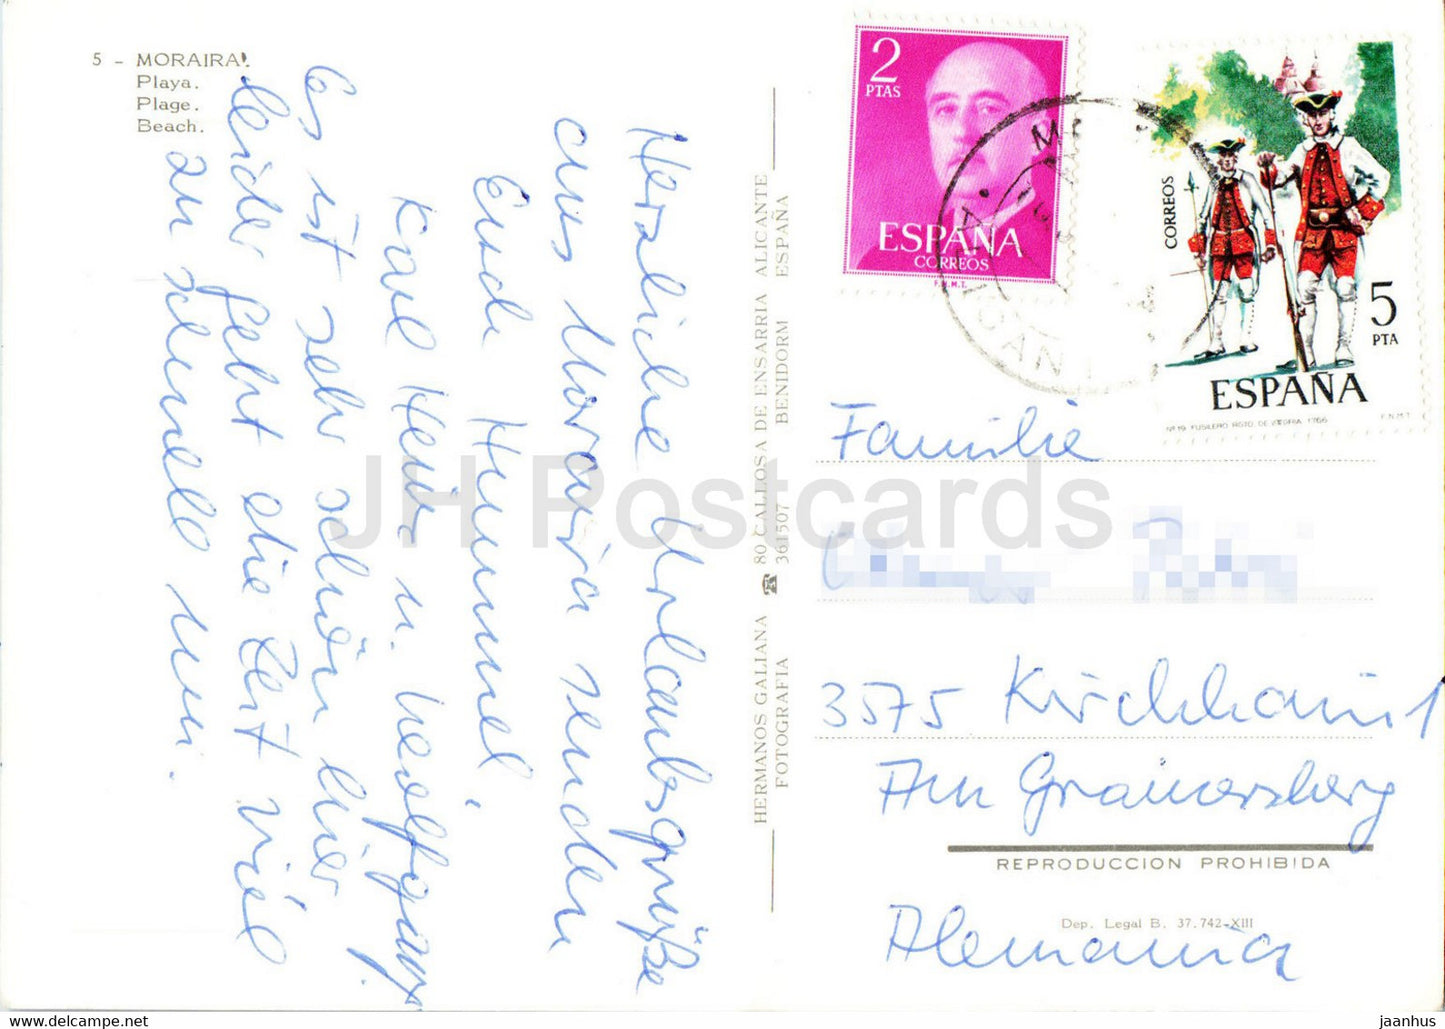 5 - MORAIRA.
Playa.
Plage.
Beach.
Herzliche Urlaubsgrüße
aus Moraira senden
Euch Hummel,
Karl Hein u. Wolfgang.
Es ist sehr schön hier
leider geht die Zeit viel
zu schnell rum.
HERMANOS GALIANA ☎ 80 CALLOSA DE ENSARRIA ALICANTE
FOTOGRAFIA 361507 BENIDORM ESPAÑA
2
PTAS
ESPAÑA
CORREOS
F.N.M.T.
CORREOS
5
PTA
ESPAÑA
Nº 19 FUSILERO RGTO. DE VITORIA 1766 F.N.M.T.
Familie
3575 Kirchhain 1
Am Grainersberg
REPRODUCCION PROHIBIDA
Dep. Legal B. 37.742-XIII
Alemania
JH Postcards
hippostcard.com/store/jaanhus
jaanhus